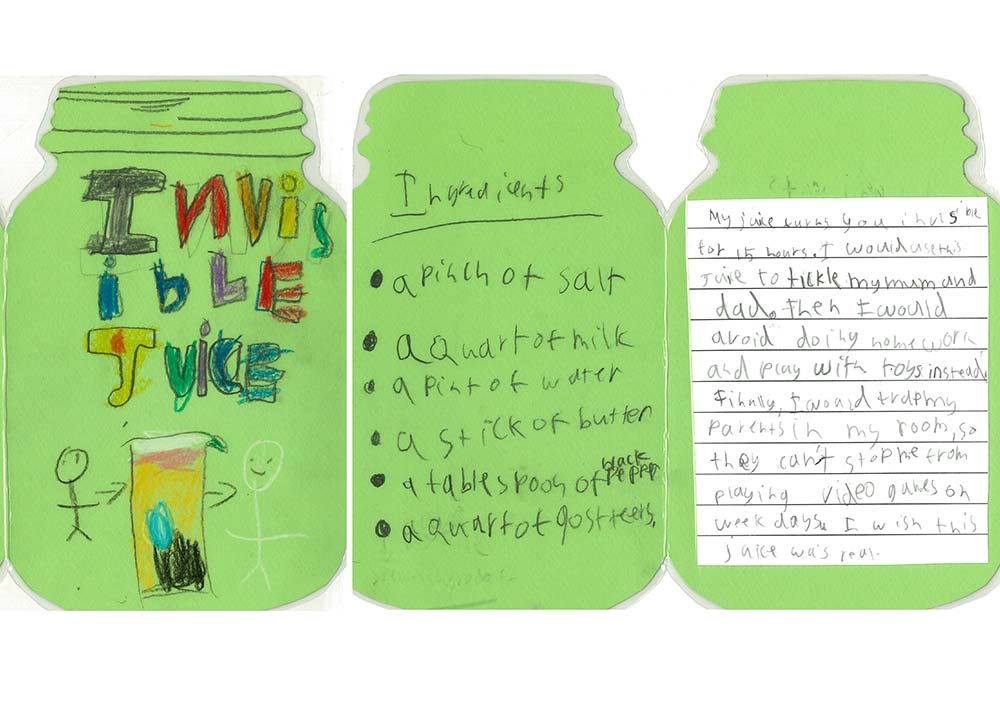 Invis
ible
Juice
Ingredients
a pinch of salt
a quart of milk
a pint of water
a stick of butter
a tablespoon of black pepper
a quart of gost teers.
My juice turns you invisible
for 15 hours. I would use this
juice to tickle my mum and
dad. Then I would
avoid doing homework
and play with toys instead.
Finally, I would trap my
parents in my room, so
they can't stop me from
playing video games on
week days. I wish this
juice was real.